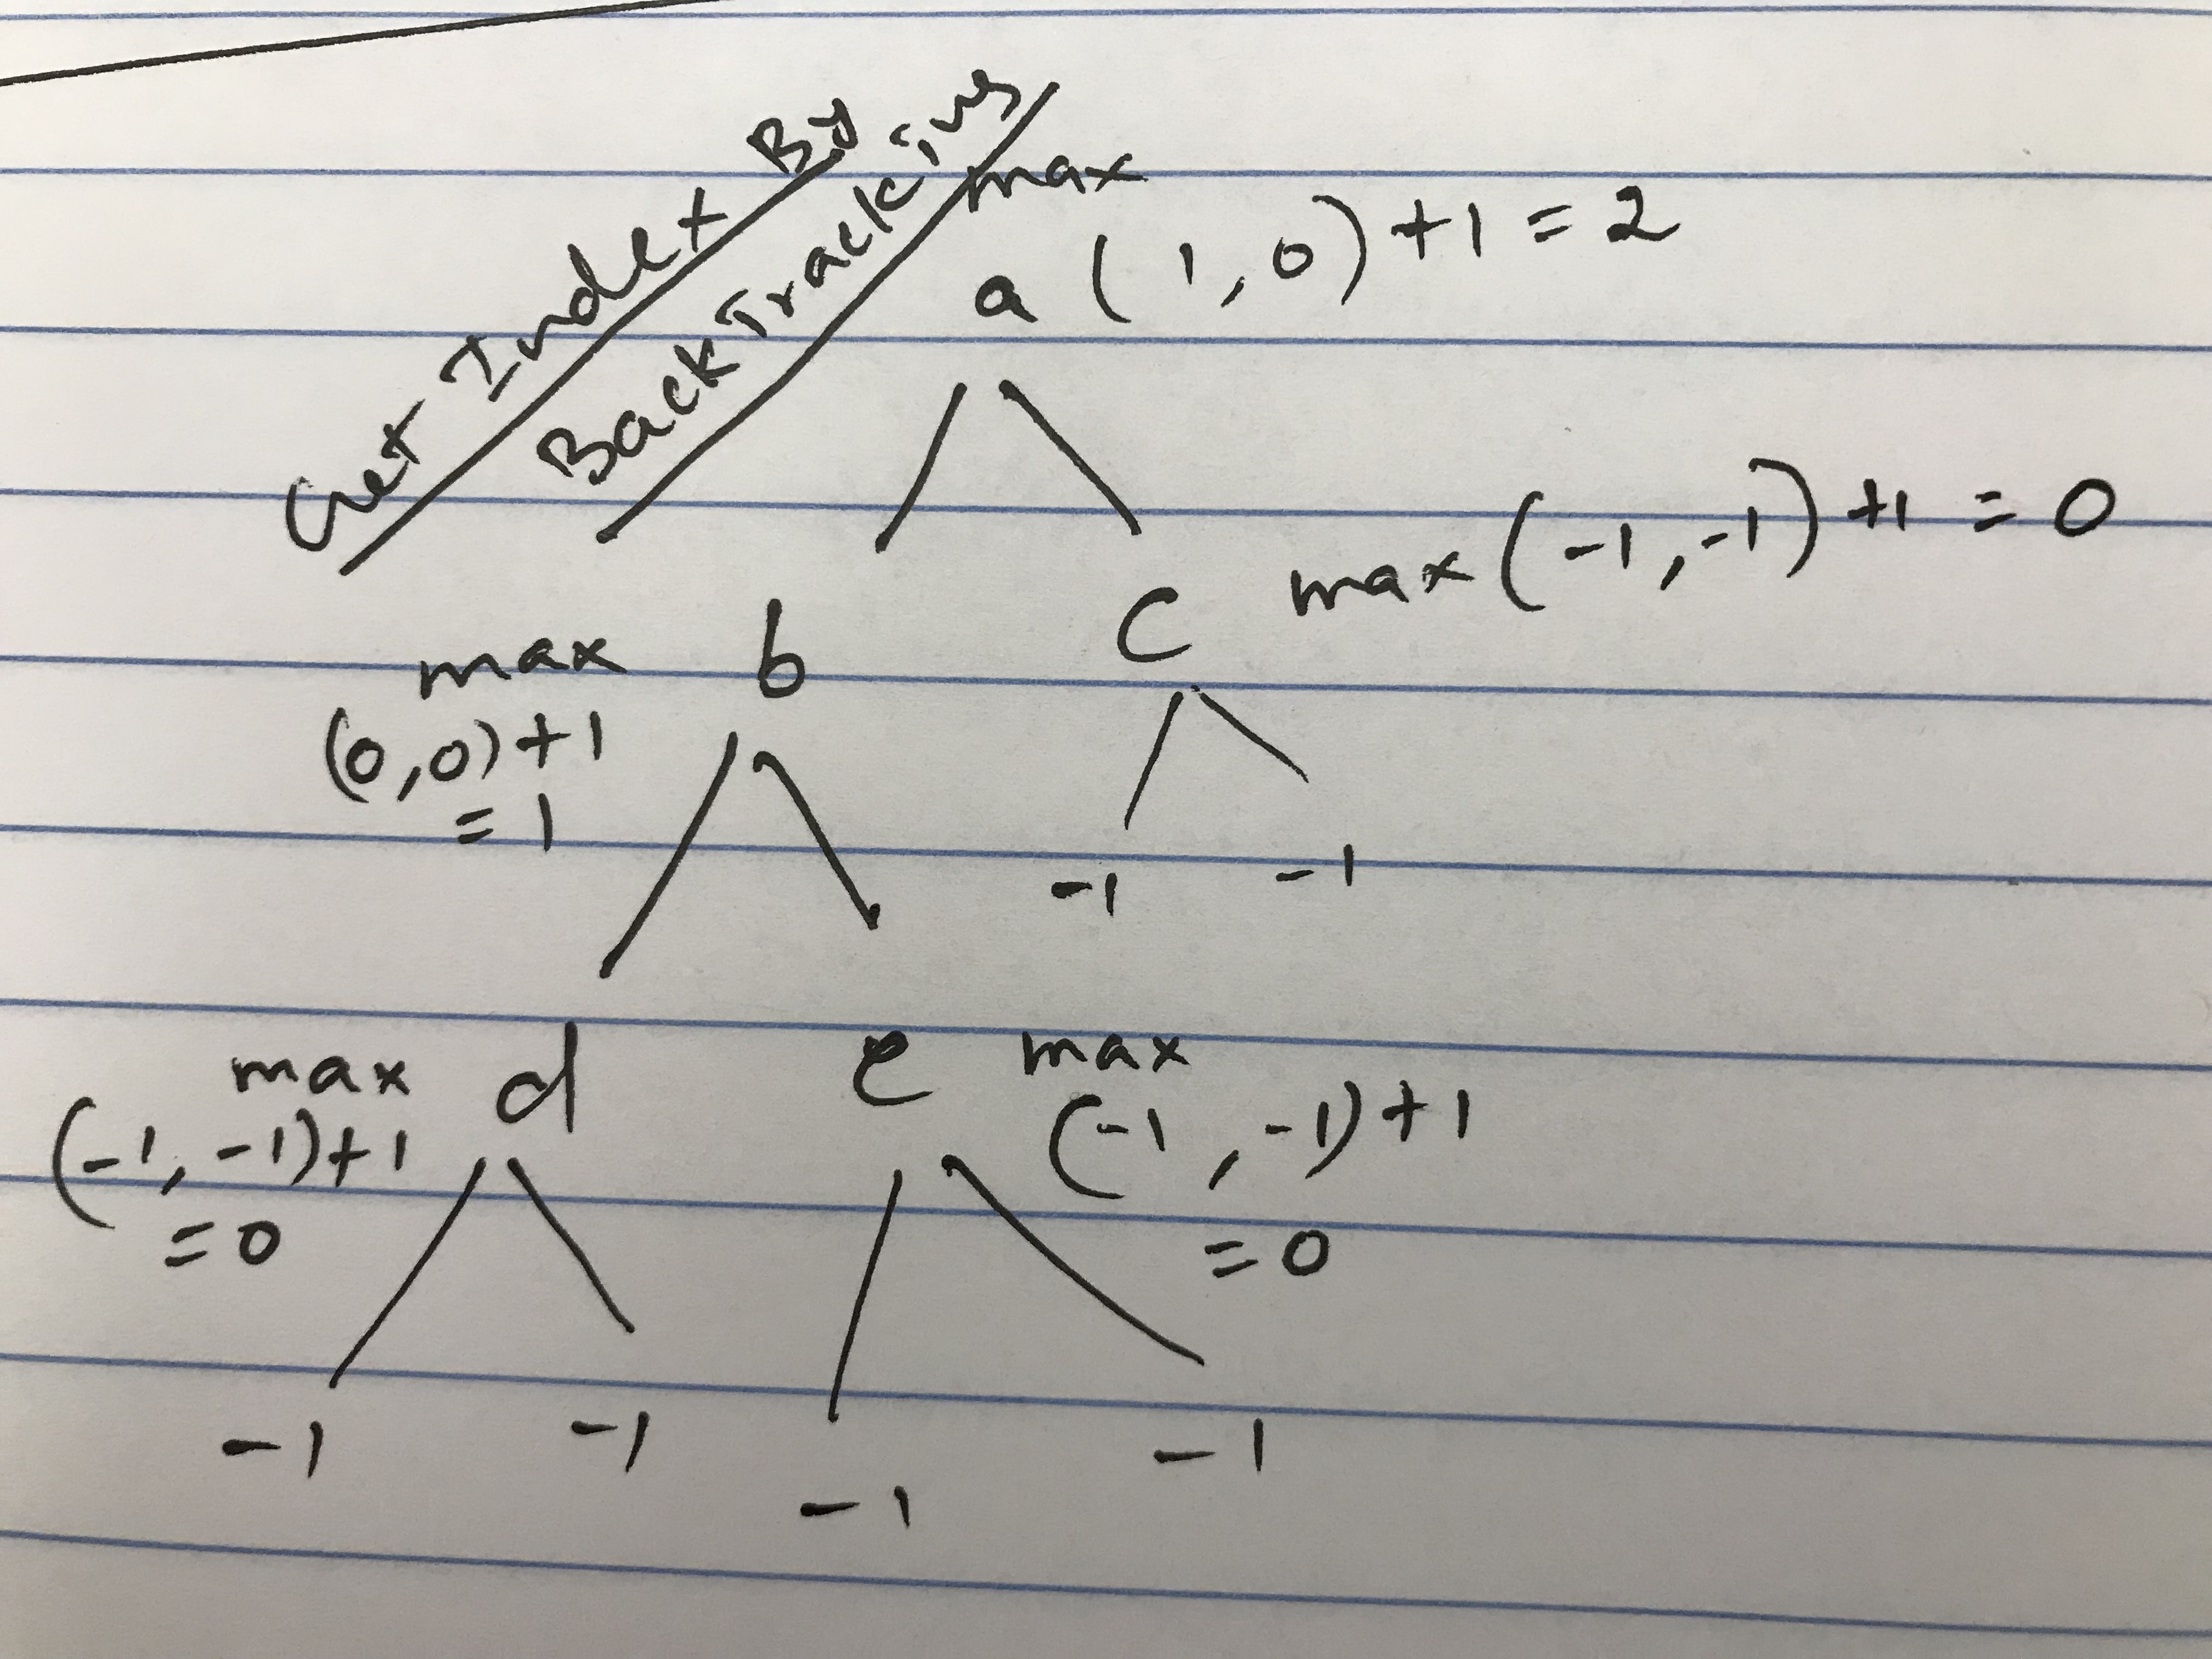 Get Index By
BackTracking
max
a (1,0)+1 = 2
max b
(0,0)+1
= 1
c max(-1,-1)+1 = 0
-1 -1
max d
(-1,-1)+1
=0
e max
(-1,-1)+1
=0
-1 -1
-1 -1